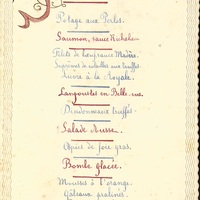 Potage aux Perles.
Saumon, sauce Richelieu
Filets de bœuf sauce Madère.
Suprêmes de volailles aux truffes
Lièvre à la Royale.
Langoustes en Belle-vue.
Dindonneaux truffés.
Salade Russe.
Aspics de foie gras.
Bombe glacée.
Mousses à l'orange.
Gâteaux pralinés.